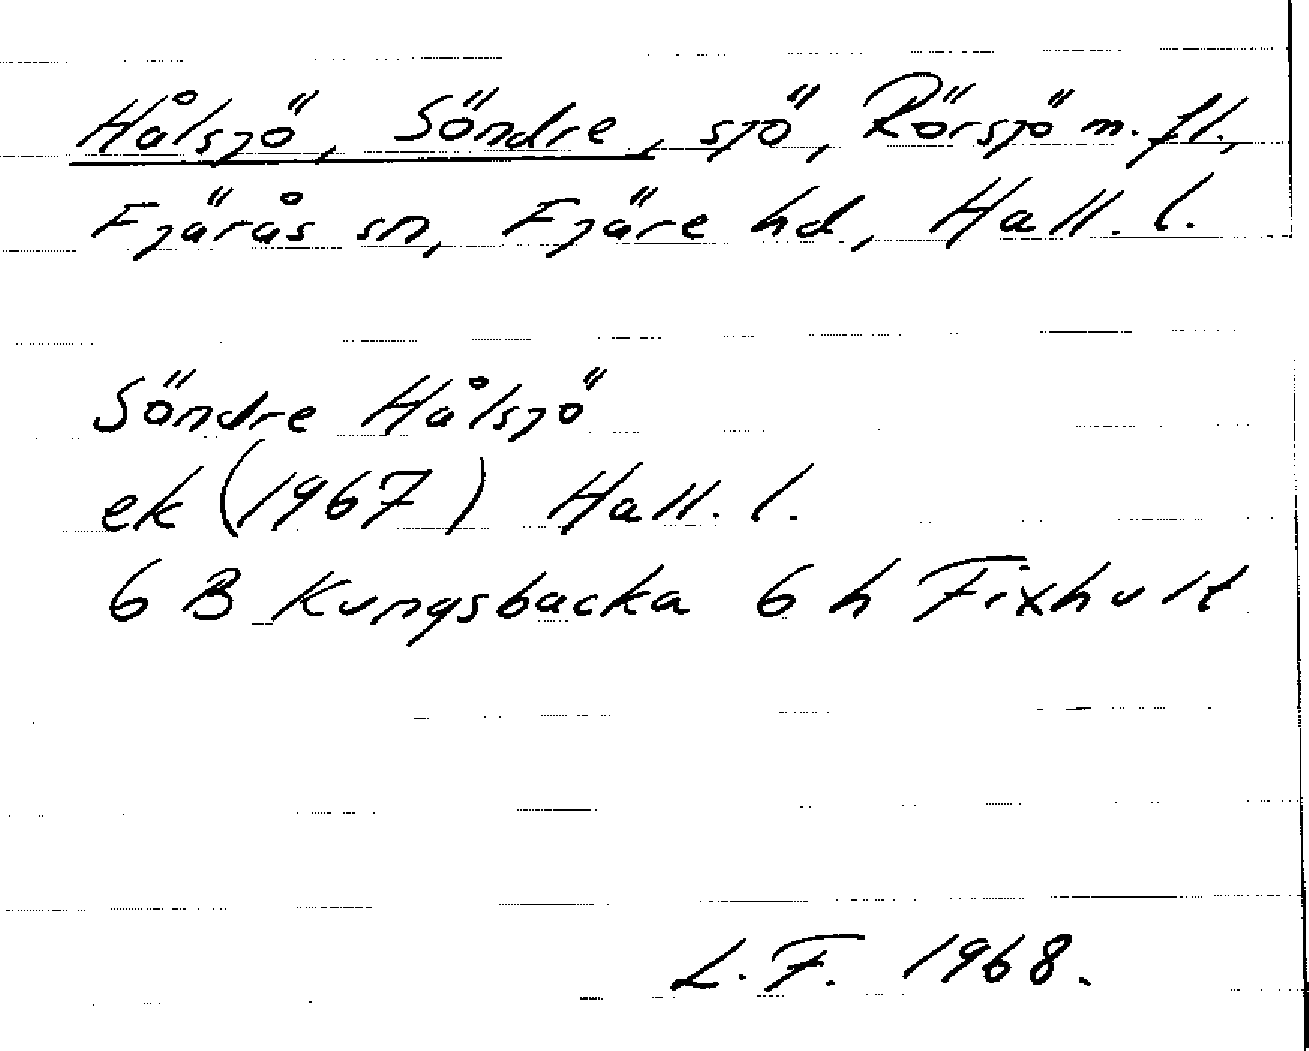 Hålsjö, Söndre, sjö, Rörsjö m. fl.,
Fjärås sn, Fjäre hd, Hall. l.
Söndre Hålsjö
ek (1967) Hall. l.
6 B Kungsbacka 6 h Fixhult
L. F. 1968.